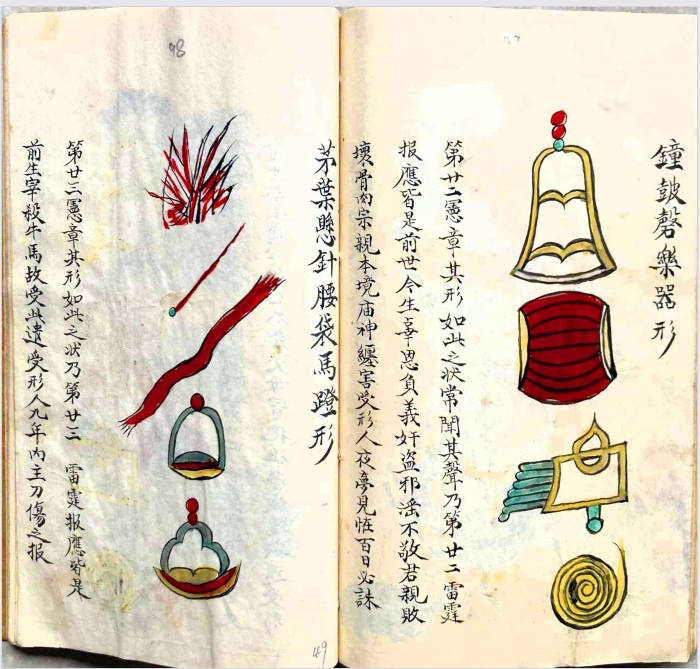 鐘皷磬樂器形
第廿二憲章其形如此之狀常聞其聲乃第廿二雷霆
报應皆是前世今生辜恩負義奸盗邪滛不敬君親敗
壞骨肉宗親本境庙神纏害受形人夜夢見恠百日必誅
茅葉懸針腰袋馬蹬形
第廿三憲章其形如此之狀乃第廿三 雷霆报應皆是
前生宰殺牛馬故受此遣受形人九年内主刀傷之报
98
49